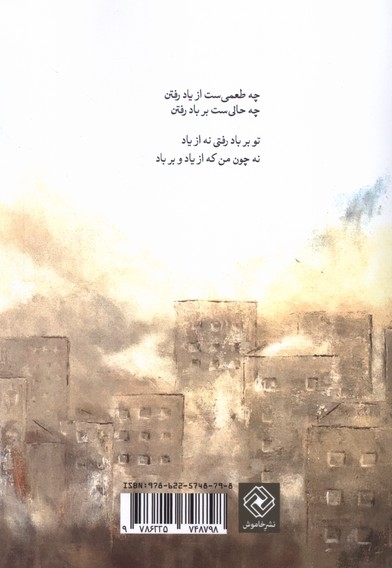 چه طعمی‌ست از یاد رفتن
چه حالی‌ست بر باد رفتن
تو بر باد رفتی نه از یاد
نه چون من که از یاد و بر باد
ISBN:978-622-5748-79-8
9 786225 748798
نشر خاموش